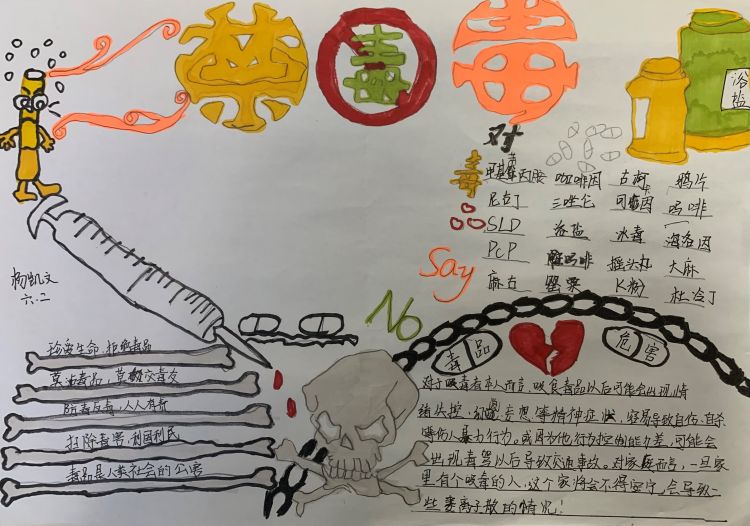 禁毒
浴盐
对
毒
甲基苯丙胺 咖啡因 古柯 鸦片
尼古丁 三唑仑 可卡因 吗啡
SLD 浴盐 冰毒 海洛因
PCP 吗啡 摇头丸 大麻
麻古 罂粟 K粉 杜冷丁
Say
No
杨凯文
六.二
珍爱生命,拒绝毒品
莫沾毒品,莫交毒友
防毒反毒,人人有责
扫除毒害,利国利民
毒品是人类社会的公害
毒品 危害
对于吸毒者本人而言,吸食毒品以后可能会出现情
绪失控、幻觉妄想等精神症状,容易导致自伤、自杀
等伤人暴力行为。或因为他行为控制能力差,可能会
出现毒驾以后导致交通事故。对家庭而言,一旦家
里有个吸毒的人,这个家将会不得安宁,会导致一
些妻离子散的情况!